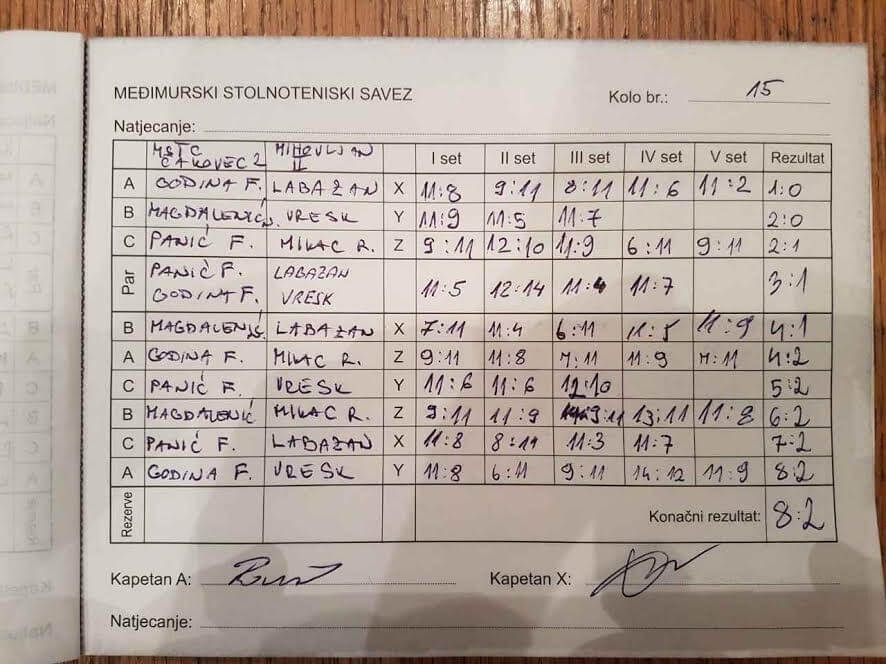 MEĐIMURSKI STOLNOTENISKI SAVEZ
Kolo br.: 15
Natjecanje:
MSTC ČAKOVEC 2 MIHOVLJAN II I set II set III set IV set V set Rezultat
A GODINA F. LABAZAN X 11:8 9:11 8:11 11:6 11:2 1:0
B MAGDALENIĆ VRESK Y 11:9 11:5 11:7 2:0
C PANIĆ F. MIKAC R. Z 9:11 12:10 11:9 6:11 9:11 2:1
Par PANIĆ F. LABAZAN
GODINA F. VRESK 11:5 12:14 11:4 11:7 3:1
B MAGDALENIĆ LABAZAN X 7:11 11:4 6:11 11:5 11:9 4:1
A GODINA F. MIKAC R. Z 9:11 11:8 7:11 11:9 7:11 4:2
C PANIĆ F. VRESK Y 11:6 11:6 12:10 5:2
B MAGDALENIĆ MIKAC R. Z 9:11 11:9 9:11 13:11 11:8 6:2
C PANIĆ F. LABAZAN X 11:8 8:11 11:3 11:7 7:2
A GODINA F. VRESK Y 11:8 6:11 9:11 14:12 11:9 8:2
Rezerve Konačni rezultat: 8:2
Kapetan A: Kapetan X:
Natjecanje: